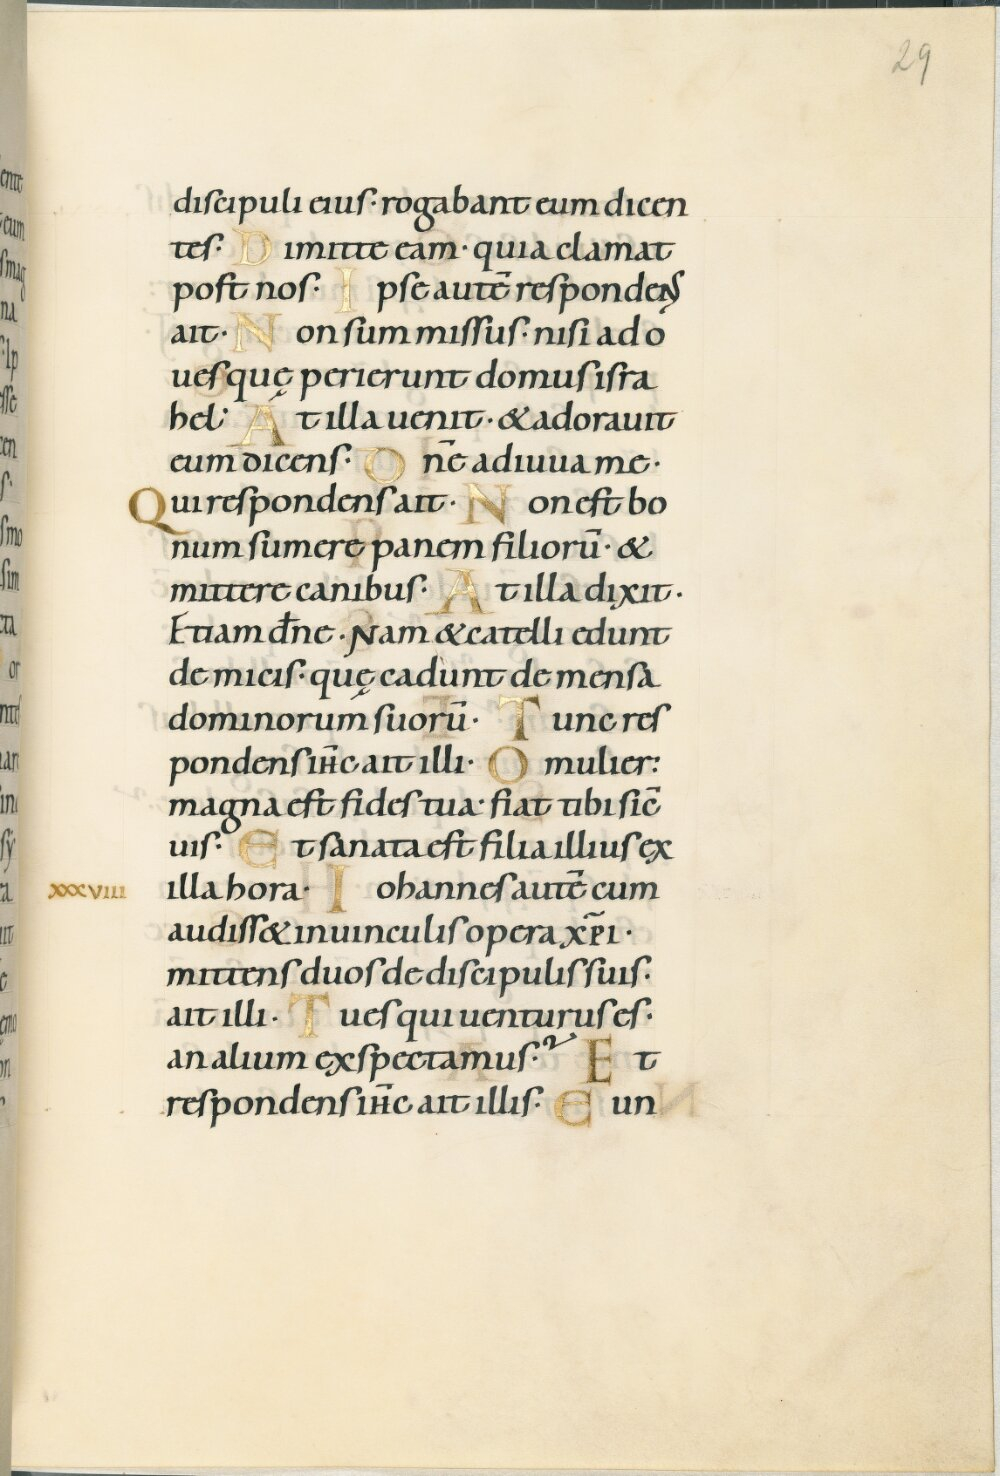 29
discipuli eius· rogabant eum dicen
tes· Dimitte eam· quia clamat
post nos· Ipse autē respondens
ait· Non sum missus· nisi ad o
ues quę perierunt domus isra
hel· At illa uenit· & adorauit
eum dicens· Dn̄e adiuua me·
Qui respondens ait· Non est bo
num sumere panem filiorū· &
mittere canibus· At illa dixit·
Etiam dn̄e· Nam & catelli edunt
de micis· quę cadunt de mensa
dominorum suorū· Tunc res
pondens ih̄c ait illi· O mulier:
magna est fides tua· fiat tibi sic̄
uis· Et sanata est filia illius ex
xxxviii illa hora· Iohannes autē cum
audiss& in uinculis opera xp̄i·
mittens duos de discipulis suis·
ait illi· Tu es qui uenturus es·
an alium exspectamus· Et
respondens ih̄c ait illis· Eun